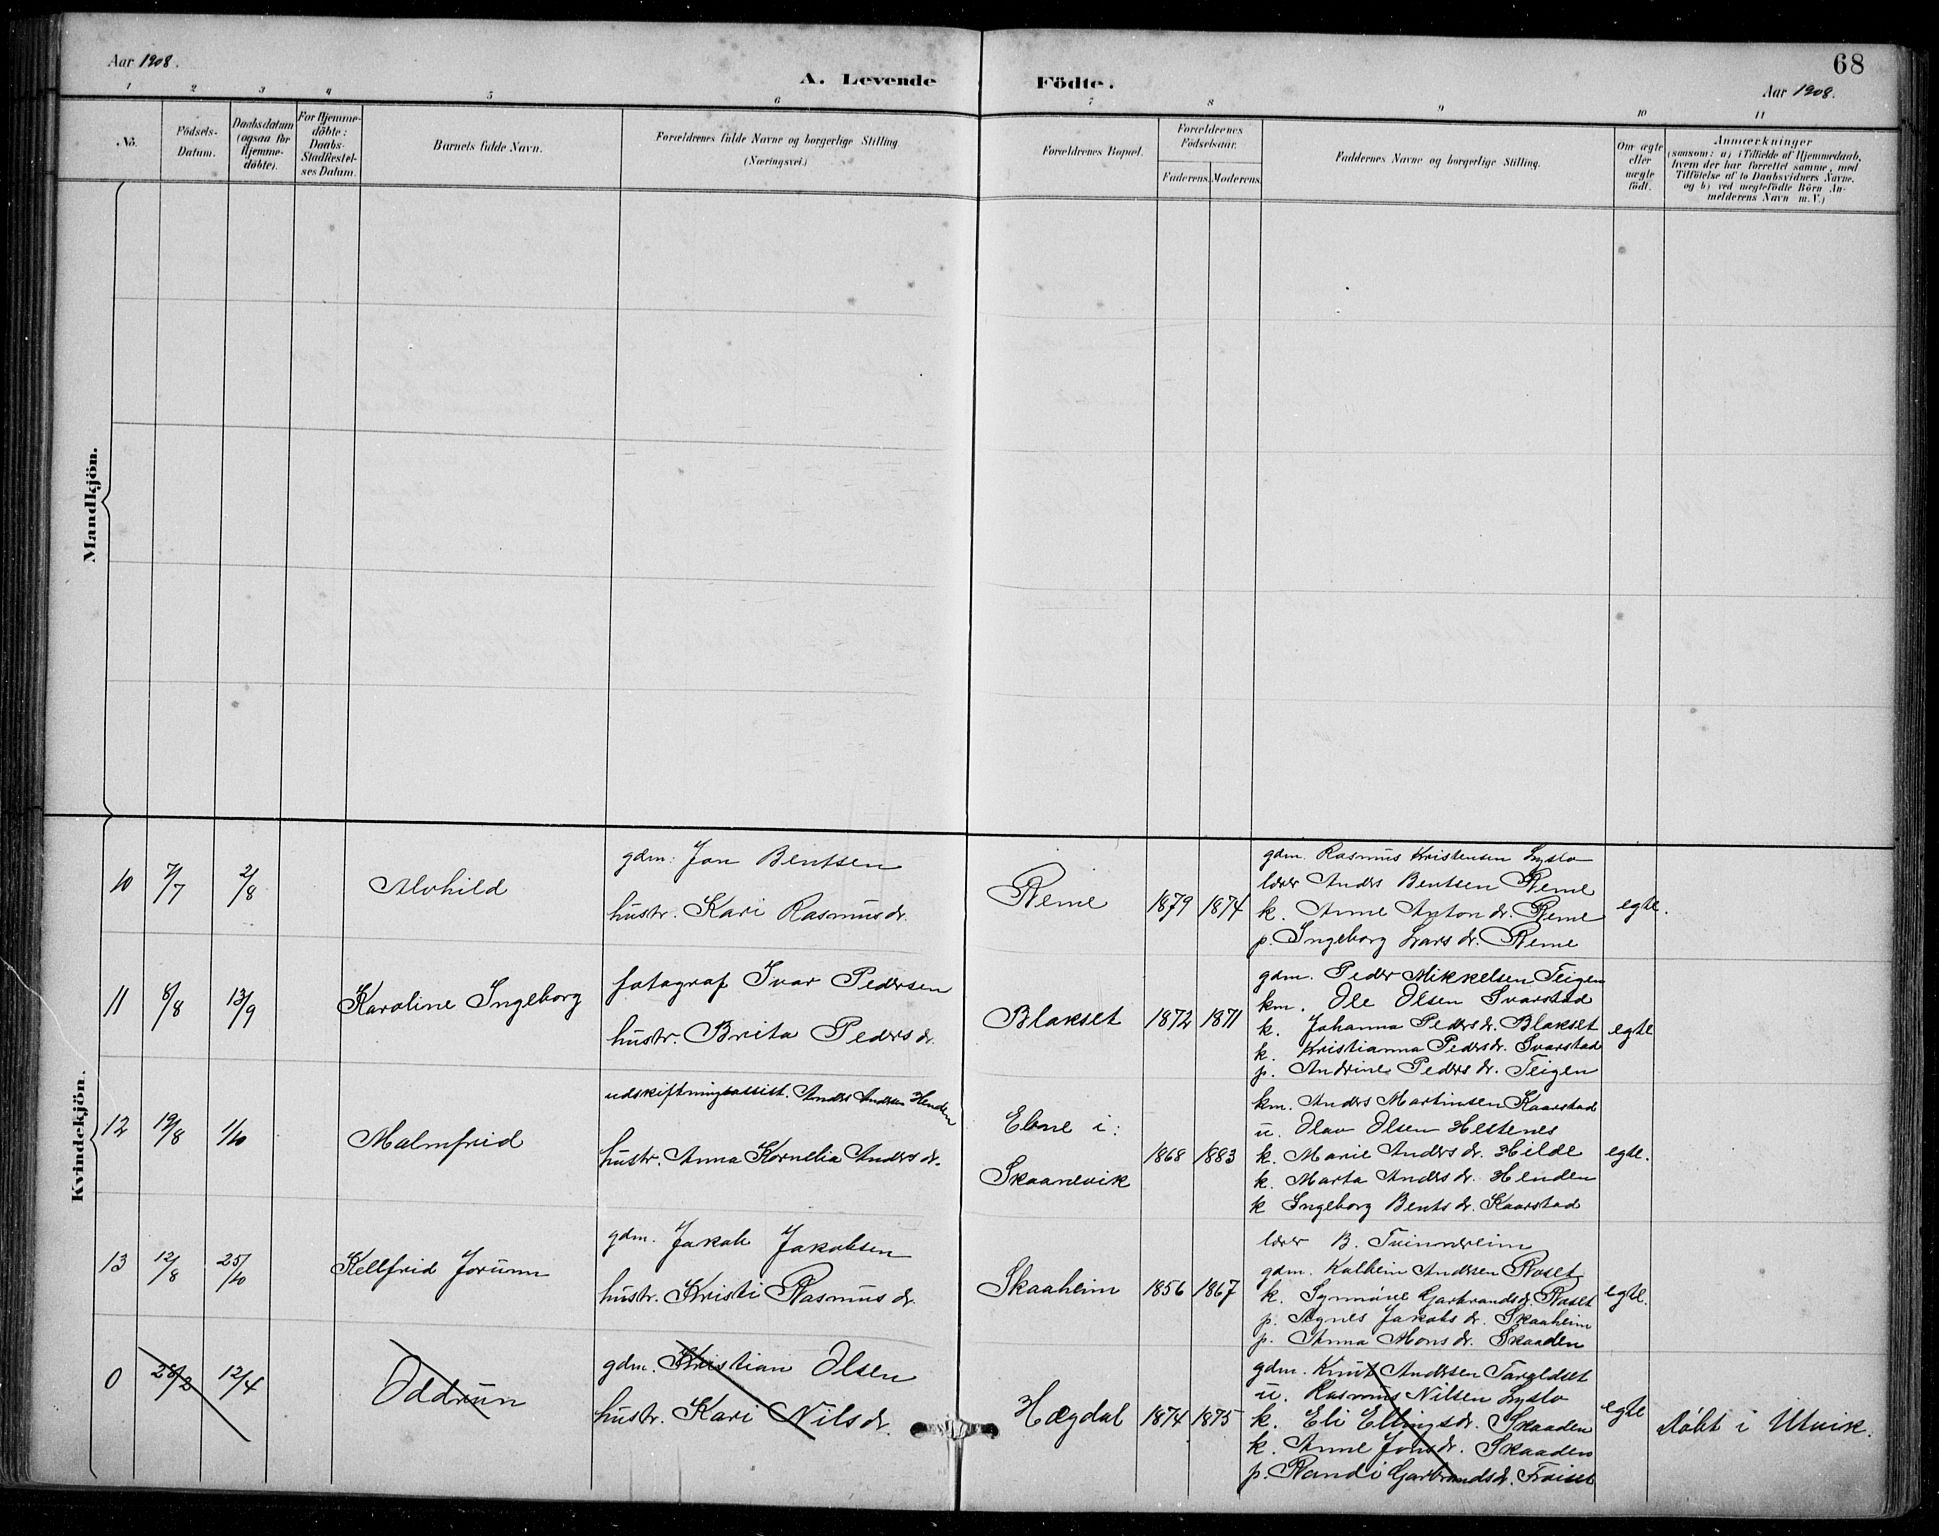 68
Aar 1908.
A. Levende Födte.
Aar 1908.
1 2 3 4 5 6 7 8 9 10 11
No.
Födsels-Datum.
Daabsdatum (ogsaa for Hjemmedöbte).
For Hjemmedöbte: Daabs-Stadfæstelses Datum.
Barnets fulde Navn.
Forældrenes fulde Navne og borgerlige Stilling
(Næringsvei.)
Forældrenes Bopæl.
Forældrenes Födselsaar.
Faderens. Moderens.
Faddernes Navne og borgerlige Stilling.
Om ægte eller uægte födt.
Anmærkninger
(saasom: a) i Tilfælde af Hjemmedaab,
hvem der har forrettet samme, med
Tilföielse af to Daabsvidners Navne.
og b) ved uægtefödte Börn An-
melderens Navn m. V.)
Mandkjön.
Kvindekjön.
10 7/7 2/8 Alvhild
gdm. Jon Bentsen
hustr. Kari Rasmusdr.
Reme 1879 1874
gdm. Rasmus Kristensen Lysto
lærer Anders Bentsen Reme
k. Anne Antondr. Reme
p. Ingeborg Larsdr. Reme
egte.
11 8/8 13/9 Karoline Ingeborg
fotograf Ivar Pedersen
hustr. Brita Pedersdr.
Blakset 1872 1871
gdm. Peder Mikkelsen Teigen
km. Ole Olsen Svarstad
k. Johanna Pedersdr. Blakset
k. Kristianna Pedersdr. Svarstad
p. Andrine Pedersdr. Teigen
egte
12 19/8 1/10 Malmfrid
udskiftningsassist. Anders Andersen Henden
hustr. Anna Kornelia Andersdr.
Ebne i:
Skaanevik
1868 1883
km. Anders Martinsen Kaarstad
u. Olav Olsen Hestenes
k. Marie Andersdr. Hilde
k. Marta Andersdr. Henden
k Ingeborg Bentsdr. Kaarstad
egte.
13 12/8 25/10 Kellfrid Jorunn
gdm. Jakob Jakobsen
hustr. Kristi Rasmusdr.
Skaaheim 1856 1867
lærer B. Tvinnereim
gdm. Kolbein Andersen Roset
k. Synnöve Garbrandsdr. Roset
p. Agnes Jakobsdr. Skaaheim
p. Anna Monsdr. Skaaden
egte.
0 28/2 12/4 Oddrun
gdm. Kristian Olsen
hustr. Kari Nilsdr.
Hægdal 1874 1875
gdm. Knut Andersen
u. Rasmus Nilsen Lysto
k. Eli Ellingsdr. Skaaden
k. Anne Jonsdr. Skaaden
p. Randi Garbrandsdr.
egte
Döbt i Utvik.